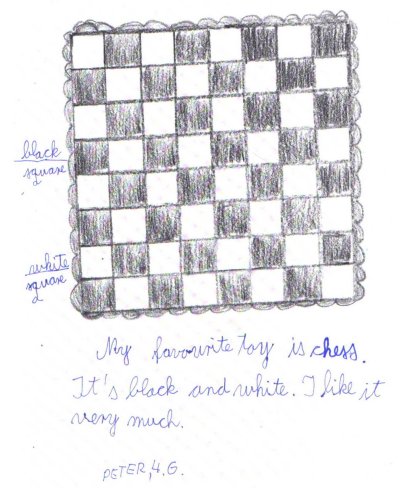 black
square
white
square
My favourite toy is chess.
It's black and white. I like it
very much.
PETER, 4. G.